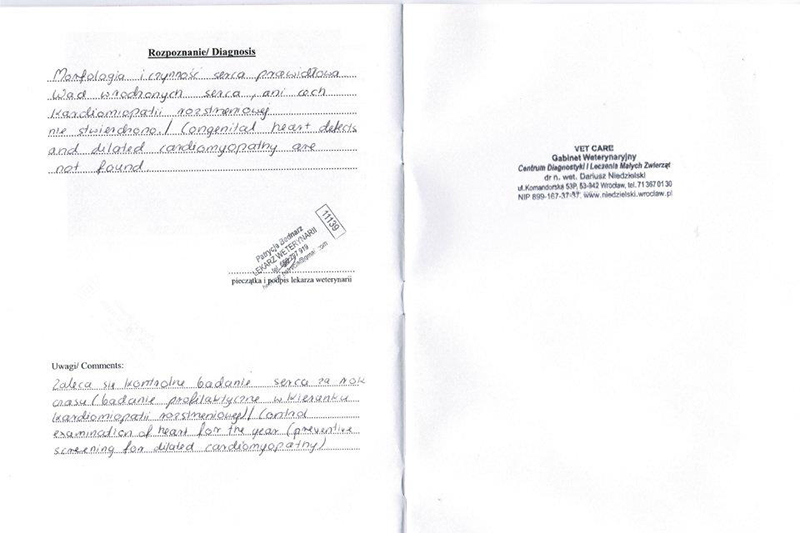 Rozpoznanie/ Diagnosis
Morfologia i czynność serca prawidłowa
Wad wrodzonych serca, ani cech
kardiomiopatii rozstrzeniowej
nie stwierdzono./ Congenital heart defects
and dilated cardiomyopathy are
not found
11139
Patrycja Bednarz
LEKARZ WETERYNARII
pieczątka i podpis lekarza weterynarii
Uwagi/ Comments:
Zaleca się kontrolne badanie serca za rok
czasu (badanie profilaktyczne w kierunku
kardiomiopatii rozstrzeniowej)/ Control
examination of heart for the year (preventive
screening for dilated cardiomyopathy)
VET CARE
Gabinet Weterynaryjny
Centrum Diagnostyki i Leczenia Małych Zwierząt
dr n. wet. Dariusz Niedzielski
ul.Komandorska 53P, 53-342 Wrocław, tel. 71 367 01 30
NIP 899-167-37-37, www.niedzielski.wroclaw.pl